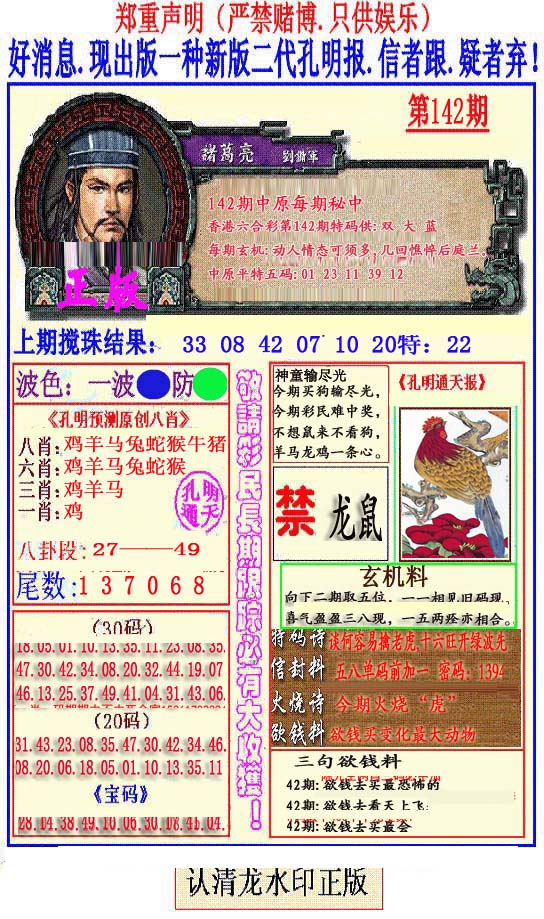 郑重声明（严禁赌博.只供娱乐）
好消息.现出版一种新版二代孔明报.信者跟.疑者弃!
第142期
諸葛亮 劉備軍
142期中原每期秘中
香港六合彩第142期特码供: 双 大 蓝
每期玄机: 动人情态可须多, 几回憔悴后庭兰.
中原平特五码: 01 23 11 39 12
正版
上期搅珠结果: 33 08 42 07 10 20特: 22
波色: 一波 防
《孔明预测原创八肖》
八肖: 鸡羊马兔蛇猴牛猪
六肖: 鸡羊马兔蛇猴
三肖: 鸡羊马
一肖: 鸡
孔明通天
八卦段: 27——49
尾数: 1 3 7 0 6 8
(30码)
18.05.01.10.13.35.11.23.08.35.
47.30.42.34.08.20.32.44.19.07
46.13.25.37.49.41.04.31.43.06.
(20码)
31.43.23.08.35.47.30.42.34.46.
08.20.06.18.05.01.10.13.35.11
《宝码》
28.14.38.49.10.06.30.18.41.04.
敬請彩民長期跟踪必有大收獲!
神童输尽光
今期买狗输尽光,
今期彩民难中奖,
不想鼠来不看狗,
羊马龙鸡一条心。
《孔明通天报》
禁 龙鼠
玄机料
向下二期取五位, 一一相见旧码现。
喜气盈盈三八现, 一五两症亦相合。
特码诗 谈何容易擒老虎,十六旺开绿波先
信封料 五八单码前加一 密码: 1394
火烧诗 今期火烧“虎”
欲钱料 欲钱买变化最大动物
三句欲钱料
42期: 欲钱去买最恐怖的
42期: 欲钱去看天上飞:
42期: 欲钱去买最会
认清龙水印正版